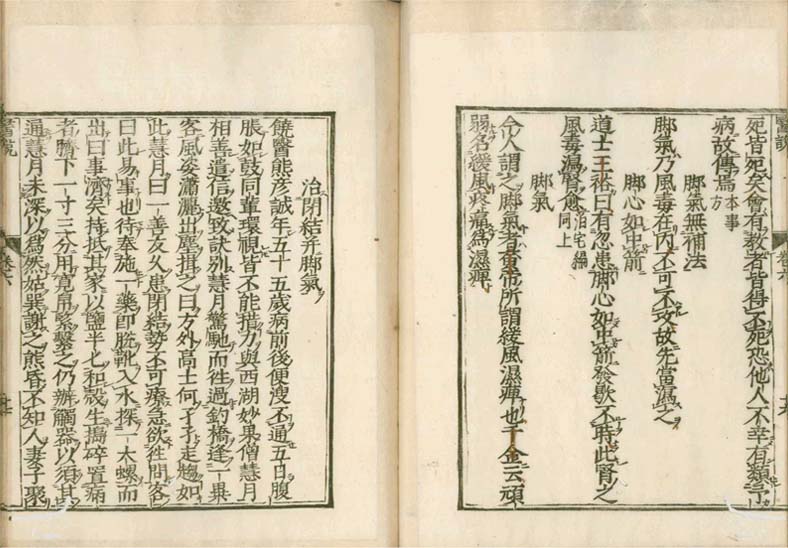 醫說
死皆死矣會有救者皆得不死恐他人不幸有類予
病故傳焉本事方
脚氣無補法
脚氣乃風毒在內不可不攻故先當瀉之
脚心如中箭
道士王裕曰有忽患脚心如中箭發歇不時此腎之
風毒瀉腎愈泊宅編同上
脚氣
今人謂之脚氣者黃帝所謂緩風濕痺也千金云頑
弱名緩風疼痛爲濕痺
治閉結并脚氣
饒醫熊彥誠年五十五歲病前後便溲不通五日腹
脹如鼓同輩環視皆不能措力與西湖妙果僧慧月
相善遣信邀致訣別慧月驚馳而徃過釣橋逢一異
客風姿瀟灑出塵揖之曰方外高士何孑孑走趨如
此慧月曰一善友久患閉結勢不可療急欲徃問客
曰此易事也待奉施一藥卽脫靴入水探一大螺而
出曰事濟矣持抵其家以鹽半匕和殼生搗碎置病
者臍下一寸三分用寬帛緊繫之仍辦觸器以須其
通慧月未深以爲然姑巽謝之熊昏不知人妻子聚
醫說
卷六